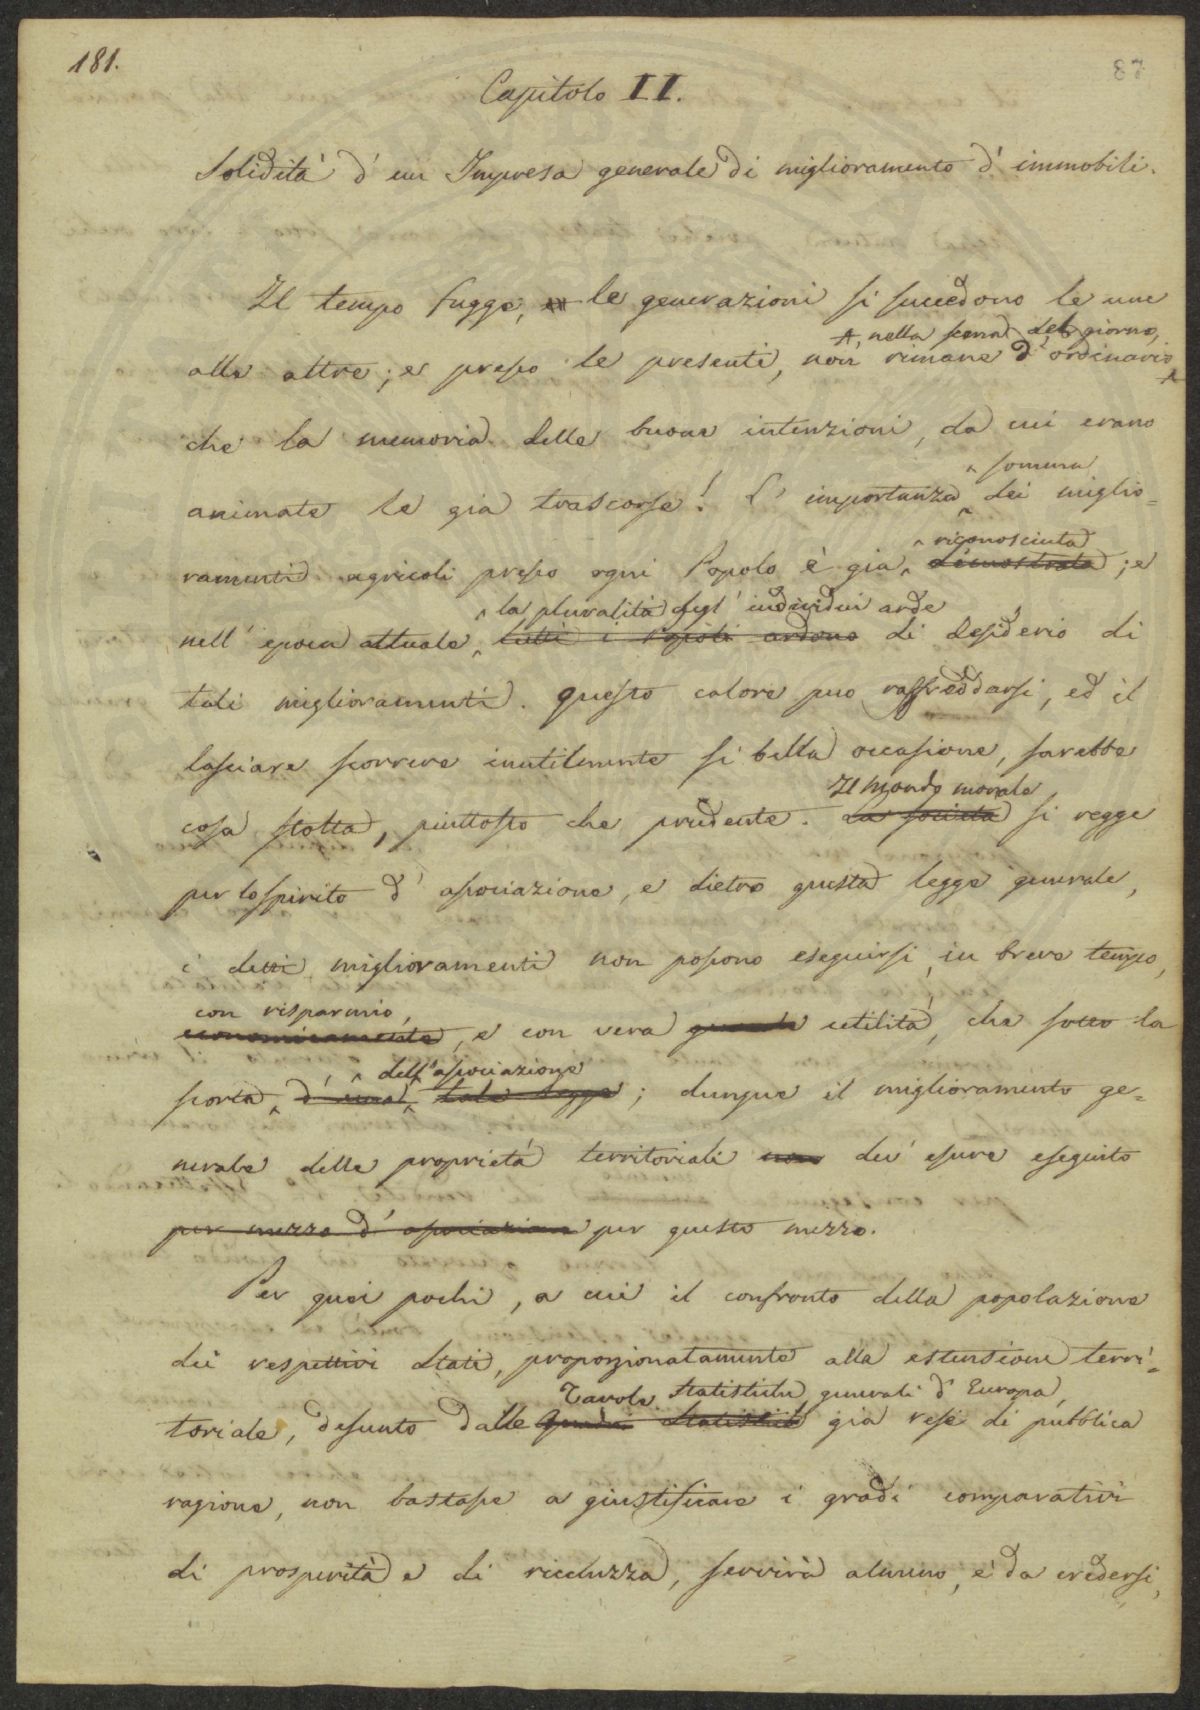 181.
87
Capitolo II.
Solidità d'un Impresa generale di miglioramento d'immobili.
Il tempo fugge, le generazioni si succedono le une
, nella scena del giorno,
alle altre; e presso le presenti, non rimane d'ordinario
che la memoria delle buone intenzioni, da cui erano
somma
animate le già trascorse! L'importanza dei miglio=
riconosciuta
ramenti agricoli presso ogni Popolo è già dimostrata; e
la pluralità degl'individui arde
nell'epoca attuale, tutti i Popoli ardono di desiderio di
tali miglioramenti. Questo calore può raffreddarsi, ed il
lasciare scorrere inutilmente sì bella occasione, sarebbe
Il mondo morale
cosa stolta, piuttosto che prudente. La società si regge
per lo spirito d'associazione, e dietro questa legge generale,
i detti miglioramenti non possono eseguirsi, in breve tempo,
con risparmio,
economicamente, e con vera grande utilità, che sotto la
dell'associazione
scorta d'una tale legge; dunque il miglioramento ge=
nerale delle proprietà territoriali non dee essere eseguito
per mezzo d'associazione per questo mezzo.
Per quei pochi, a cui il confronto della popolazione
dei respettivi Stati, proporzionatamente alla estensione terri=
Tavole Statistiche generali d'Europa,
toriale, desunto dalle Statistiche già rese di pubblica
ragione, non bastasse a giustificare i gradi comparativi
di prosperità e di ricchezza, servirà almeno, è da credersi,